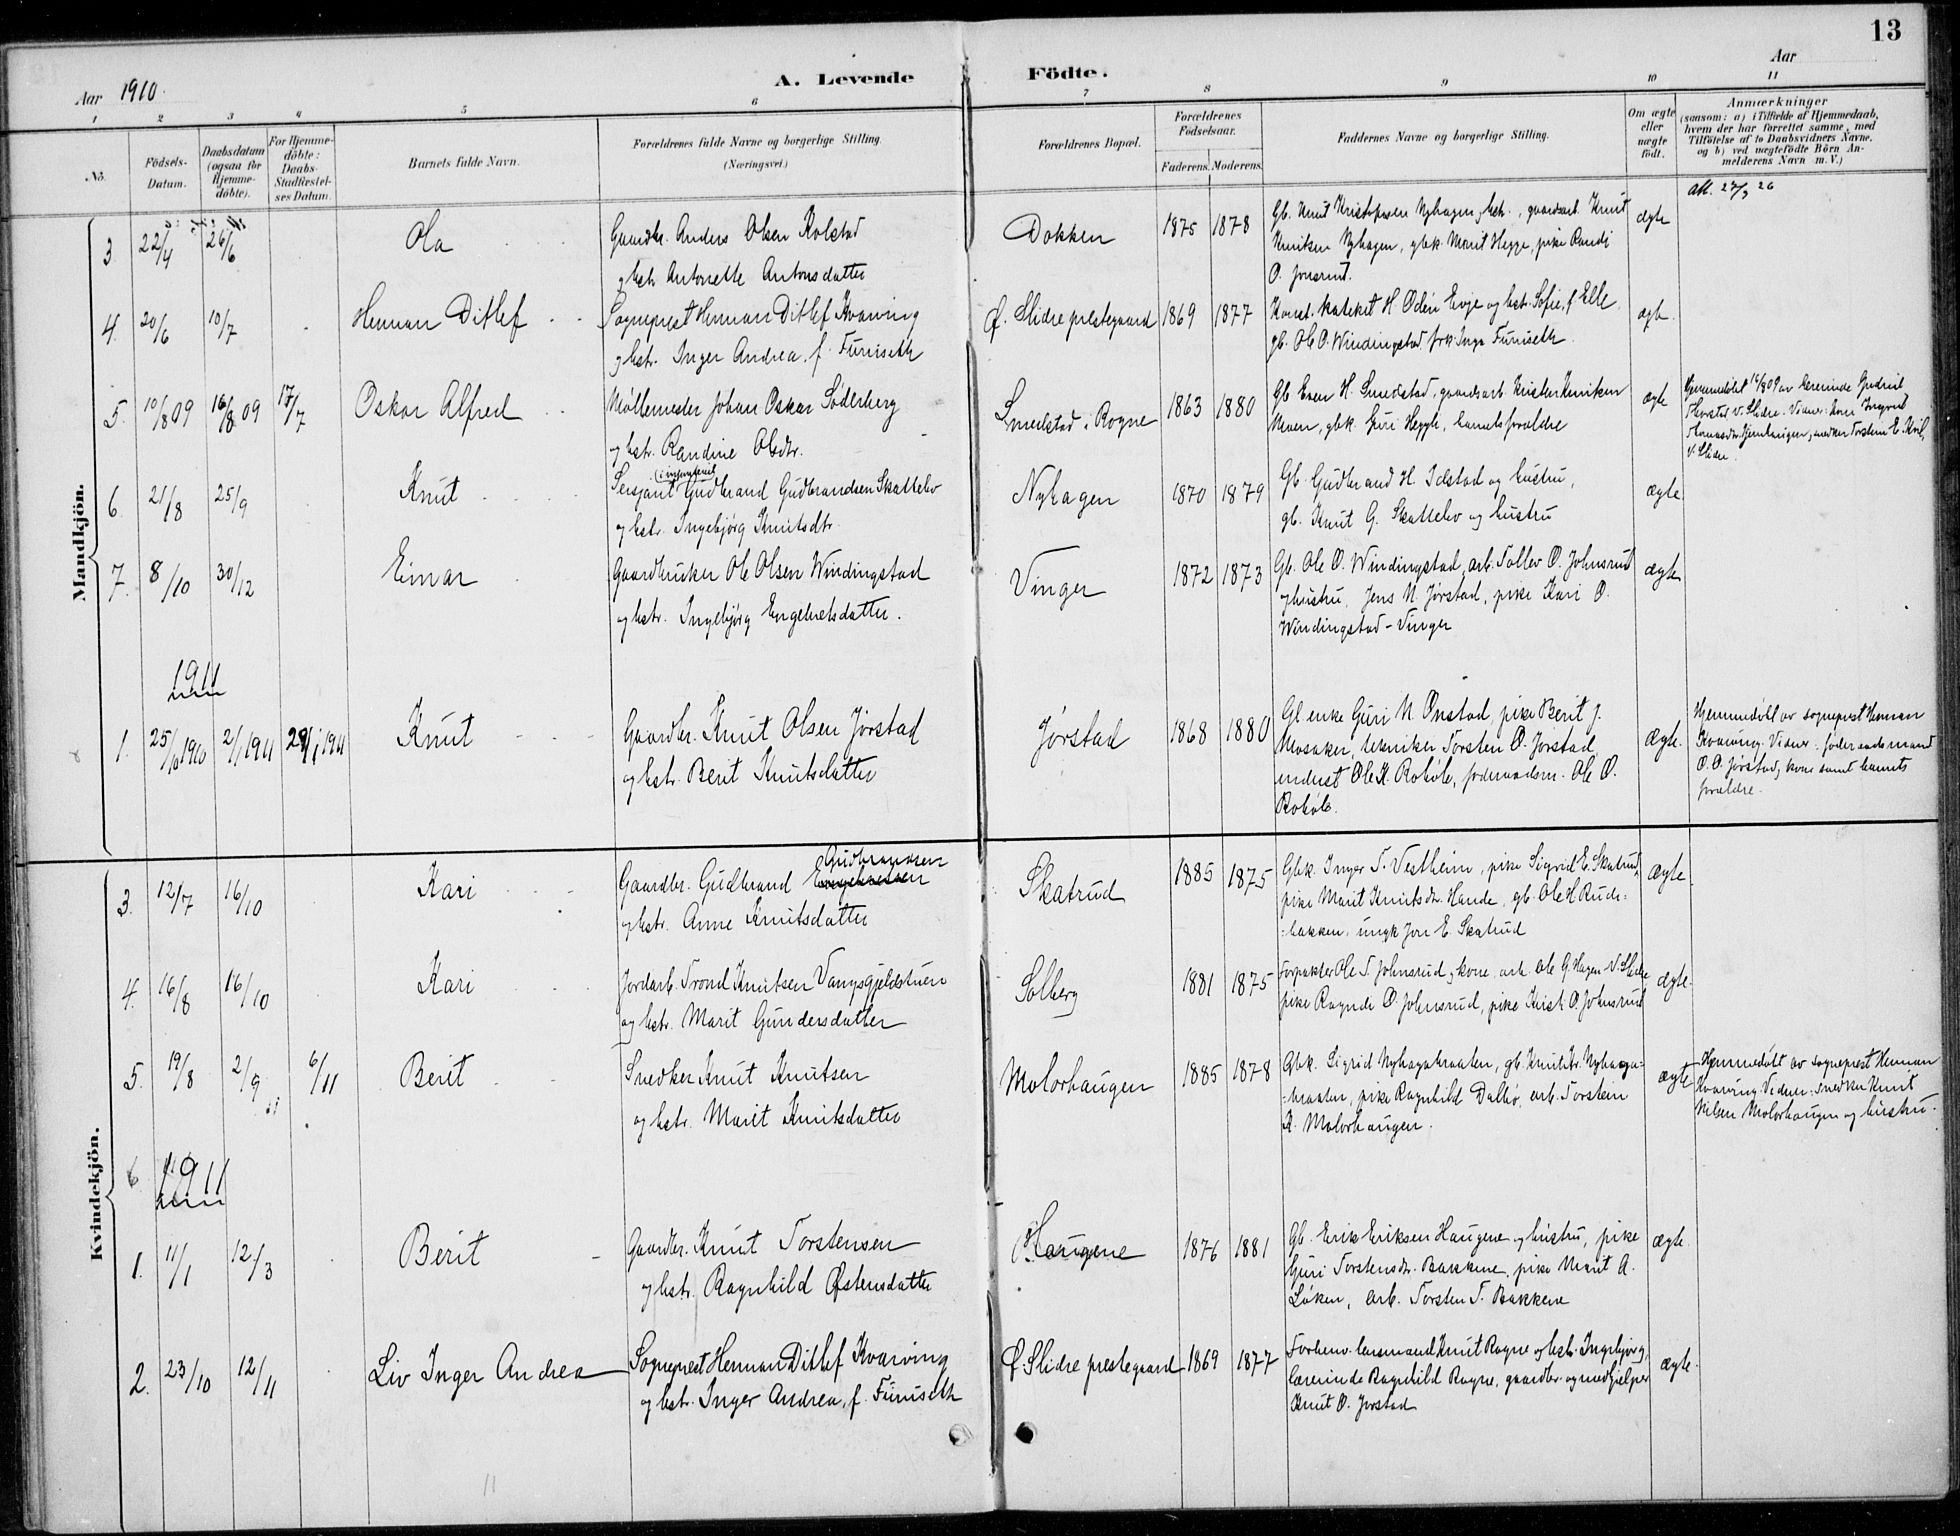 13
Aar 1910.
A. Levende Födte.
Aar
1 2 3 4 5 6 7 8 9 10 11
No.
Födsels-Datum.
Daabsdatum (ogsaa for Hjemmedöbte).
For Hjemmedöbte: Daabs-Stadfæstelses Datum.
Barnets fulde Navn.
Forældrenes fulde Navne og borgerlige Stilling. (Næringsvei.)
Forældrenes Bopæl.
Forældrenes Födselsaar.
Faderens. Moderens.
Faddernes Navne og borgerlige Stilling.
Om ægte eller uægte födt.
Anmærkninger
(saasom: a) i Tilfælde af Hjemmedaab, hvem der har forrettet samme, med Tilföielse af to Daabsvidners Navne. og b) ved uægtefödte Börn Anmelderens Navn m. V.)
Mandkjön.
att. 27/3 26
3. 22/4 26/6 Ola
Gaardbr. Anders Olsen Kolstad
og hstr. Antonette Antonsdatter
Dokken 1875 1878
Gb. Knut Kristofersen Nyhagen og hstr., gaardsarb. Knut
Knutsen Nyhagen, gbk. Marit Hegge, pike Randi
O. Jonsrud.
ægte
4. 20/6 10/7 Herman Ditlef
Sogneprest Herman Ditlef Kvarving
og hstr. Inger Andrea, f. Furuseth
Ø. Slidre prestegaard 1869 1877
Konst. kateket H. Odén Evje og hstr. Sofie, f. Elle,
gb. Ole O. Windingstad, frk. Inga Furuseth
ægte.
5. 10/8 09 16/8 09 17/7 Oskar Alfred
Møllemester Johan Oskar Søderberg
og hstr. Randine Olsdtr.
Smedstad i Rogne 1863 1880
Gb. Even H. Smedstad, gaardsarb. Kristen Knutsen
Moen, gbk. Guri Hegge, barnets forældre
ægte
Hjemmedøbt 16/8 09 av lærerinde Gudrid
Thorstad V. Slidre. Vidner: kone Ingrid
Thomasdr. Hjemhaugen, snedker Torstein E. Kvil,
V. Slidre.
6. 21/8 25/9 Knut
Sersjant (i infanteriet) Gudbrand Gudbrandsen Skattebo
og hstr. Ingebjørg Knutsdtr.
Nyhagen 1870 1879
Gb. Gudbrand H. Idstad og hustru,
gb. Knut G. Skattebo og hustru
ægte.
7. 8/10 30/12 Einar
Gaardbruker Ole Olsen Windingstad
og hstr. Ingebjørg Engebretsdatter.
Vinger 1872 1873
Gb. Ole O. Windingstad, arb. Tollev O. Johnsrud
og hustru, Jens N. Jørstad, pike Kari O.
Windingstad - Vinger
ægte
1911
1. 25/10 1910 2/1 1911 29/1 1911 Knut
Gaardbr. Knut Olsen Jørstad
og hstr. Berit Knutsdatter
Jørstad 1868 1880
Gl. enke Guri N. Onstad, pike Berit J.
Mosaker, tekniker Torsten O. Jørstad,
underst. Ole K. Robøle, føderaadsm. Ole O.
Robøle.
ægte.
Hjemmedøbt av sogneprest Herman
Kvarving. Vidner: føderaadsmand
O. O. Jørstad, kone samt barnets
forældre.
Kvindekjön.
3. 12/7 16/10 Kari
Gaardbr. Gudbrand Engebretsen Gudbrandsen
og hstr. Anne Knutsdatter
Skatrud 1885 1875
Gbk. Inger T. Vestheim, pike Sigrid E. Skatrud,
pike Marit Knutsdr. Hande, gb. Ole H. Rude-
bakken, ungk. Jon E. Skatrud
ægte.
4. 16/8 16/10 Kari
Jordarb. Trond Knutsen Vangsgjeldstuen
og hstr. Marit Gundersdatter
Solberg 1881 1875
Forpakter Ole T. Johnsrud og kone, arb. Ole G. Hagen V. Slidre,
pike Ragnde O. Johnsrud, pike Krist. O. Johnsrud
ægte.
5. 19/8 2/9 6/11 Berit
Snedker Knut Knutsen
og hstr. Marit Knutsdatter
Molorhaugen 1885 1878
Gbk. Sigrid Nyhagabraaten, gb. Knut Kr. Nyhaga-
braaten, pike Ragnhild Dalbø, arb. Torstein
K. Molorhaugen.
ægte
Hjemmedøbt av sogneprest Herman
Kvarving. Vidner: snedker Knut
Nilsen Molorhaugen og hustru.
6
1911
1. 11/1 12/3 Berit
Gaardbr. Knut Torstensen
og hstr. Ragnhild Østensdatter
Haugene 1876 1881
Gb. Erik Eriksen Haugene og hustru, pike
Guri Torstensdr. Bakkene, pike Marit A.
Løken, arb. Torsten T. Bakkene
ægte.
2. 23/10 12/11 Liv Inger Andrea
Sogneprest Herman Ditlef Kvarving
og hstr. Inger Andrea, f. Furuseth
Ø. Slidre prestegaard 1869 1877
Forhenv. lensmand Knut Rogne og hstr. Ingebjørg,
lærerinde Ragnhild Rogne, gaardbr. og medhjelper
Knut O. Jørstad
ægte.
11